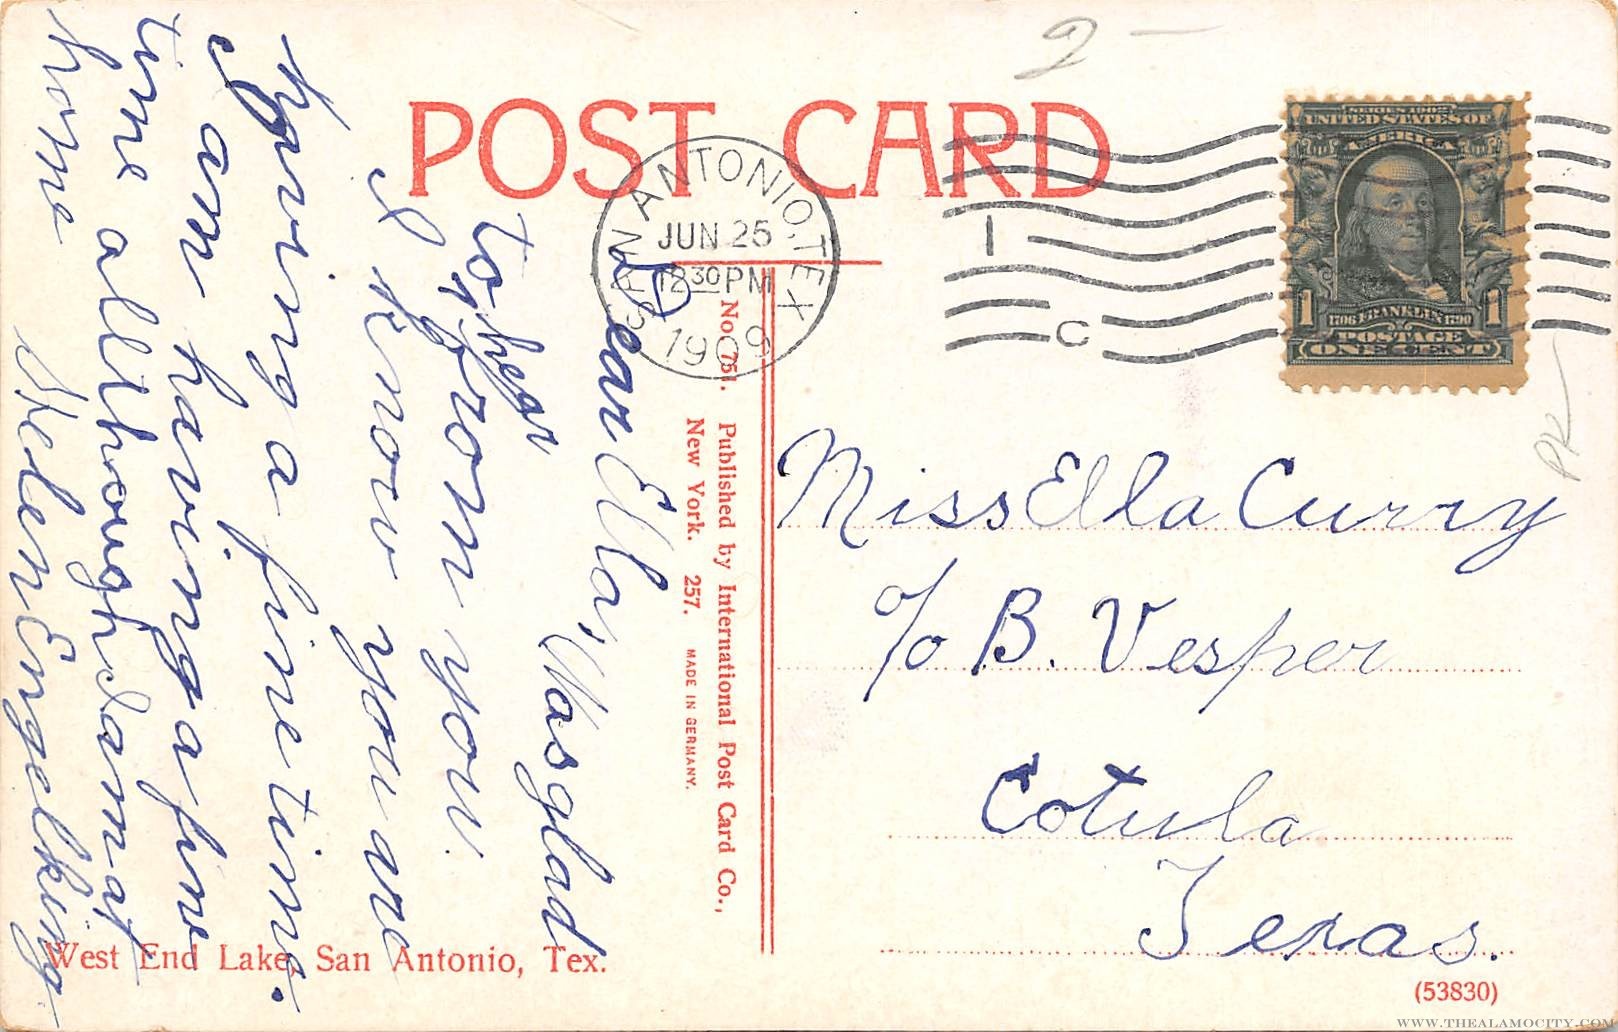 POST CARD
2 —
SAN ANTONIO, TEX.
JUN 25
12 30 PM
1909
1 C
SERIES 1902
UNITED STATES OF
AMERICA
1706 FRANKLIN 1790
1 1
POSTAGE
ONE CENT
PK
Dear Ella, Was glad
to hear
from you.
I know you are
having a fine time.
I am having a fine
time allthough I am at
home
Helen Engelking
No. 751. Published by International Post Card Co.,
New York. 257. MADE IN GERMANY.
Miss Ella Curry
c/o B. Vesper
Cotula
Texas.
West End Lake, San Antonio, Tex.
(53830)
WWW.THEALAMOCITY.COM